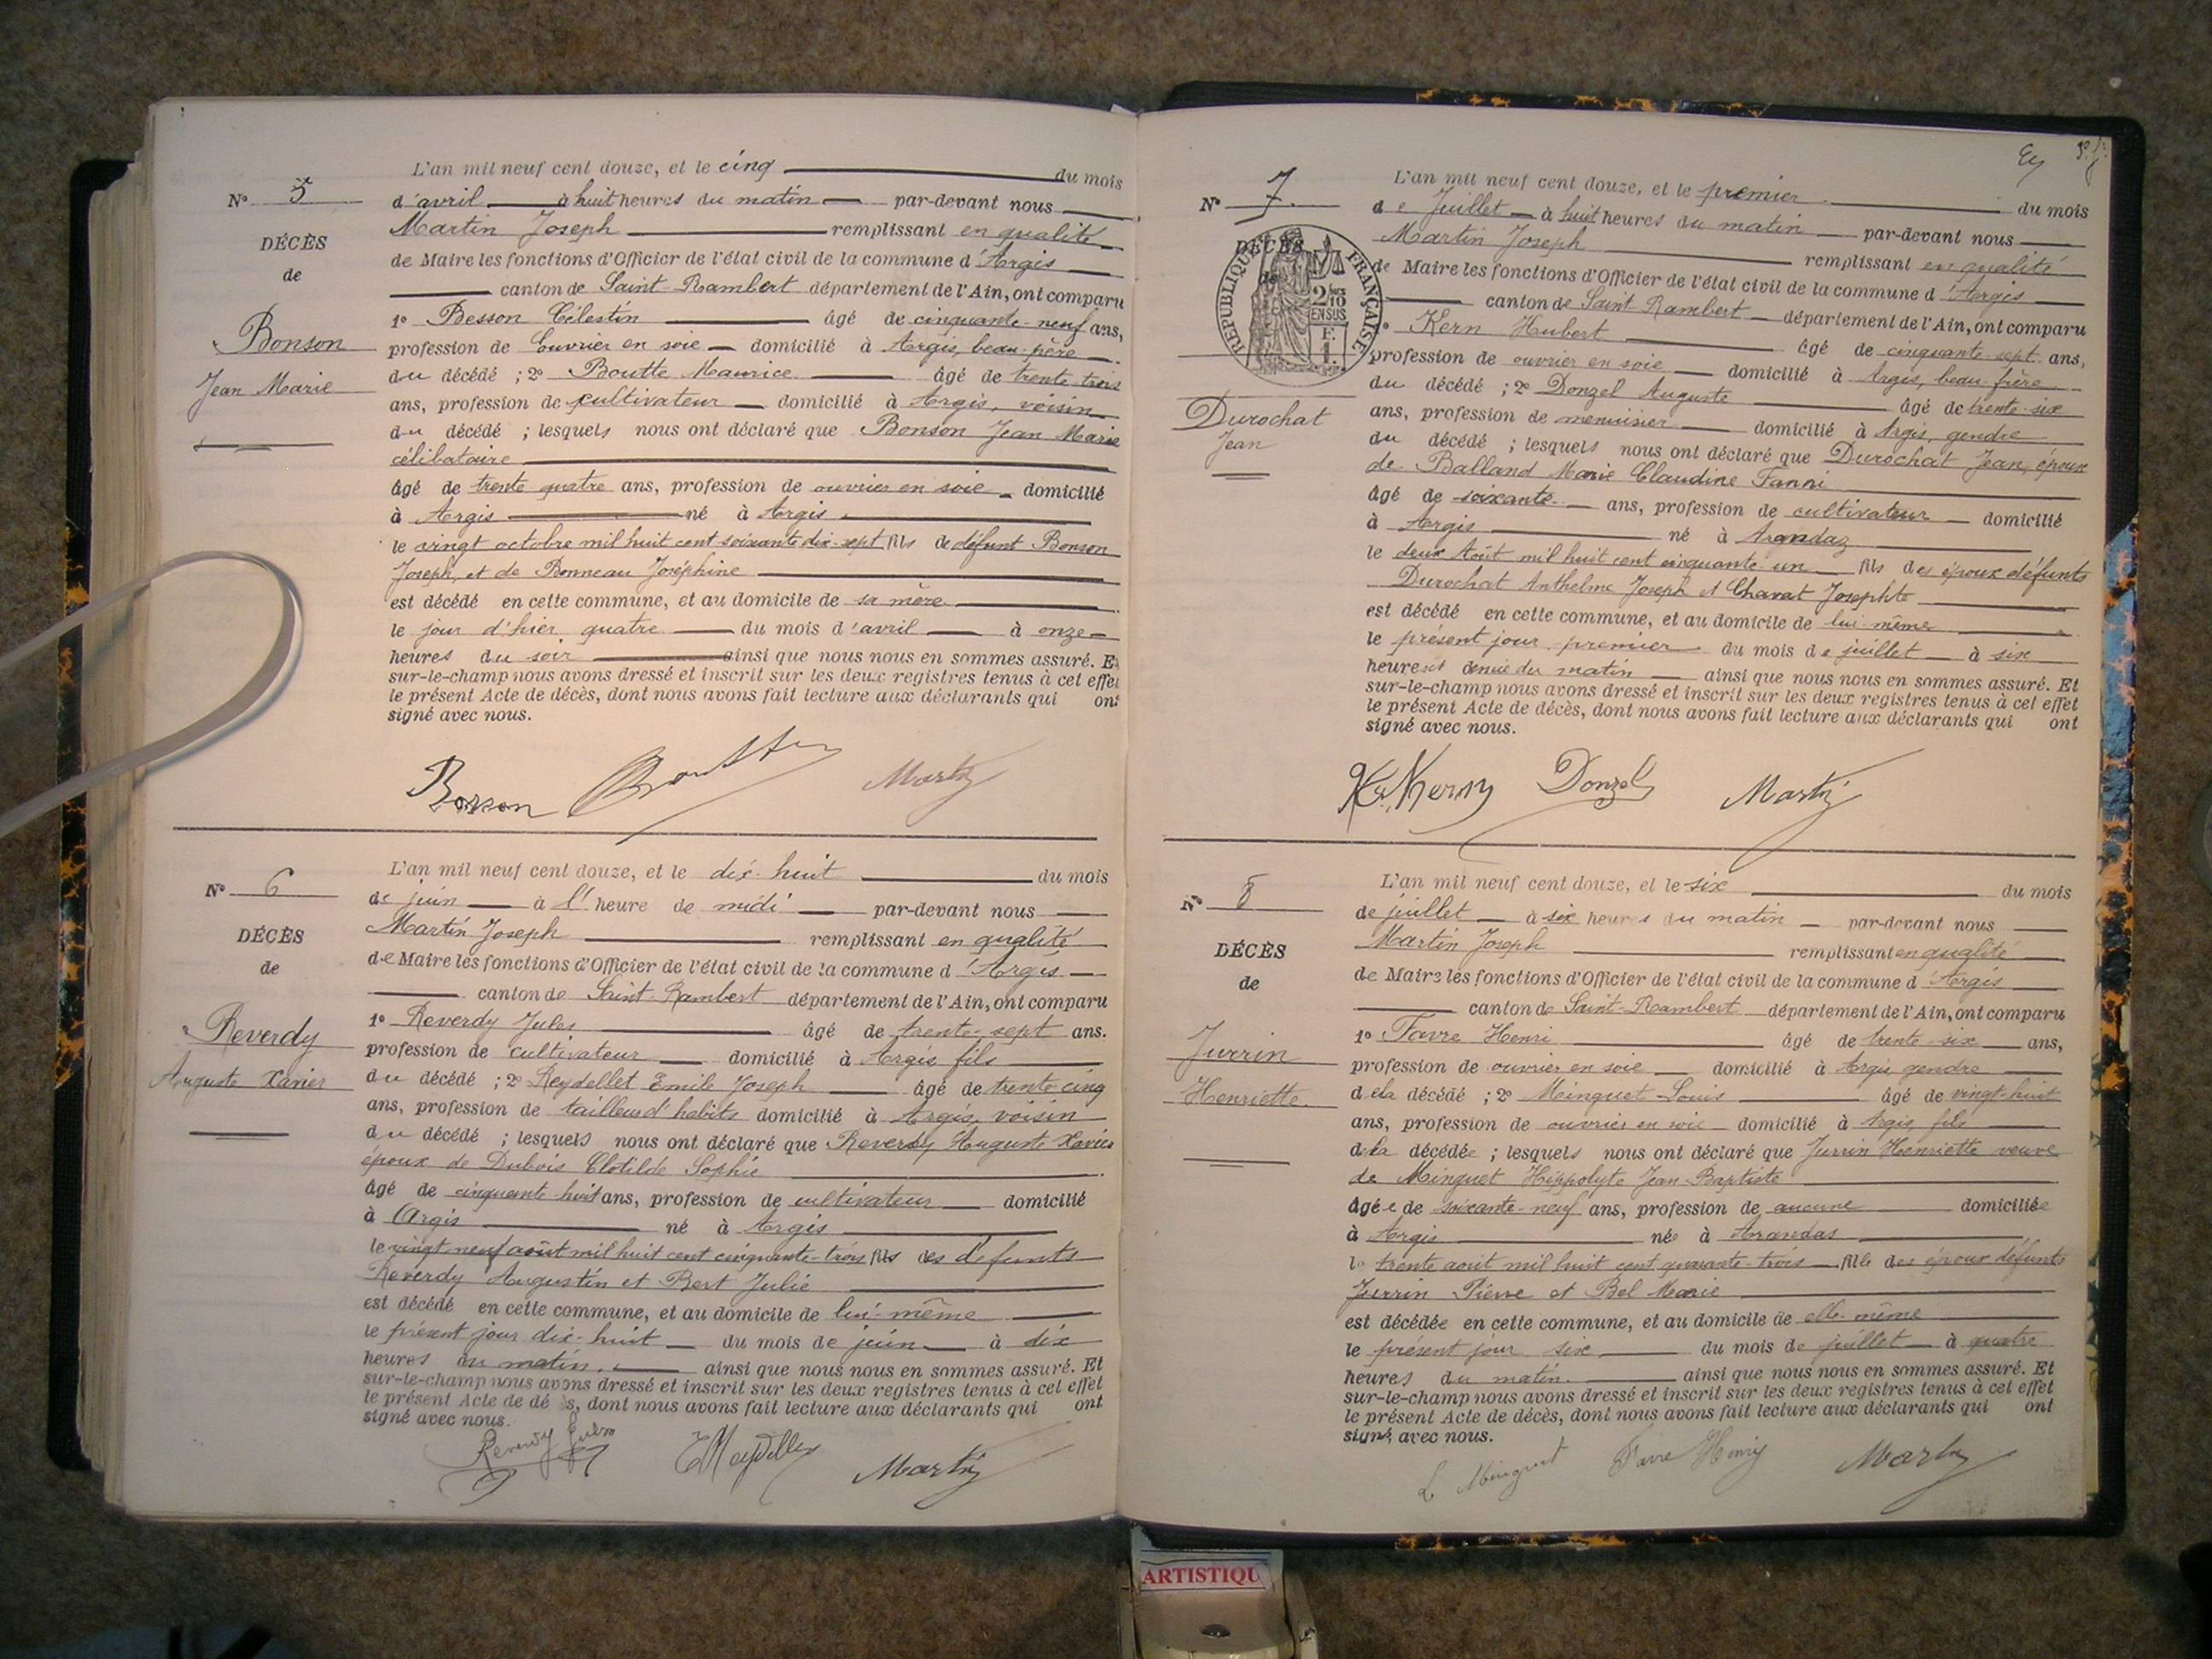 L'an mil neuf cent douze, et le cinq du mois
N° 5 d'avril à huit heures du matin par-devant nous
Martin Joseph remplissant en qualité
DÉCÈS
de Maire les fonctions d'Officier de l'état civil de la commune d'Argis
de
canton de Saint-Rambert département de l'Ain, ont comparu
1° Besson Célestin âgé de cinquante-neuf ans,
Bonson
profession de Ouvrier en soie domicilié à Argis, beau-père
Jean Marie
du décédé ; 2° Boutte Maurice âgé de trente trois
ans, profession de cultivateur domicilié à Argis, voisin
du décédé ; lesquels nous ont déclaré que Bonson Jean Marie
célibataire
âgé de trente quatre ans, profession de ouvrier en soie domicilié
à Argis né à Argis
le vingt octobre mil huit cent soixante dix-sept fils de défunt Bonson
Joseph, et de Bonneau Joséphine
est décédé en cette commune, et au domicile de sa mère
le jour d'hier quatre du mois d'avril à onze
heures du soir ainsi que nous nous en sommes assuré. Et
sur-le-champ nous avons dressé et inscrit sur les deux registres tenus à cet effet
le présent Acte de décès, dont nous avons fait lecture aux déclarants qui ont
signé avec nous.
Boutte Martin
L'an mil neuf cent douze, et le dix-huit du mois
N° 6 de juin à l'heure de midi par-devant nous
Martin Joseph remplissant en qualité
DÉCÈS
de Maire les fonctions d'Officier de l'état civil de la commune d'Argis
de
canton de Saint-Rambert département de l'Ain, ont comparu
1° Reverdy Jules âgé de trente-sept ans.
Reverdy
profession de cultivateur domicilié à Argis fils
Auguste Xavier
du décédé ; 2° Reydellet Emile Joseph âgé de trente-cinq
ans, profession de tailleur d'habits domicilié à Argis, voisin
du décédé ; lesquels nous ont déclaré que Reverdy Auguste Xavier
époux de Dubois Clotilde Sophie
âgé de cinquante huit ans, profession de cultivateur domicilié
à Argis né à Argis
le vingt neuf août mil huit cent cinquante-trois fils des défunts
Reverdy Augustin et Bert Julie
est décédé en cette commune, et au domicile de lui-même
le présent jour dix-huit du mois de juin à dix
heures du matin. ainsi que nous nous en sommes assuré. Et
sur-le-champ nous avons dressé et inscrit sur les deux registres tenus à cet effet
le présent Acte de décès, dont nous avons fait lecture aux déclarants qui ont
signé avec nous.
Reverdy Jules E Reydellet Martin
L'an mil neuf cent douze, et le premier du mois
N° 7. de Juillet à huit heures du matin par-devant nous
Martin Joseph remplissant en qualité
DÉCÈS
de
RÉPUBLIQUE FRANÇAISE
2/10 EN SUS
F. 1.
de Maire les fonctions d'Officier de l'état civil de la commune d'Argis
canton de Saint Rambert département de l'Ain, ont comparu
1° Kern Hubert âgé de cinquante-sept ans,
profession de ouvrier en soie domicilié à Argis, beau-frère
Durochat
Jean
du décédé ; 2° Donzel Auguste âgé de trente-six
ans, profession de menuisier domicilié à Argis, gendre
du décédé ; lesquels nous ont déclaré que Durochat Jean, époux
de Balland Marie Claudine Fanni
âgé de soixante ans, profession de cultivateur domicilié
à Argis né à Arandaz
le deux Août mil huit cent cinquante un fils des époux défunts
Durochat Anthelme Joseph et Charat Josephte
est décédé en cette commune, et au domicile de lui-même
le présent jour premier du mois de juillet à six
heures et demie du matin ainsi que nous nous en sommes assuré. Et
sur-le-champ nous avons dressé et inscrit sur les deux registres tenus à cet effet
le présent Acte de décès, dont nous avons fait lecture aux déclarants qui ont
signé avec nous.
Kern Donzel Martin
L'an mil neuf cent douze, et le six du mois
N° 8 de juillet à six heures du matin par-devant nous
Martin Joseph remplissant en qualité
DÉCÈS
de Maire les fonctions d'Officier de l'état civil de la commune d'Argis
de
canton de Saint-Rambert département de l'Ain, ont comparu
1° Favre Henri âgé de trente-six ans,
Jurrin
profession de ouvrier en soie domicilié à Argis, gendre
Henriette
de la décédé ; 2° Minguet Louis âgé de vingt-huit
ans, profession de ouvrier en soie domicilié à Argis, fils
de la décédée ; lesquels nous ont déclaré que Jurrin Henriette veuve
de Minguet Hippolyte Jean-Baptiste
âgée de soixante-neuf ans, profession de aucune domiciliée
à Argis née à Arandas
le trente août mil huit cent quarante-trois fille des époux défunts
Jurrin Pierre et Bel Marie
est décédée en cette commune, et au domicile de elle-même
le présent jour six du mois de juillet à quatre
heures du matin. ainsi que nous nous en sommes assuré. Et
sur-le-champ nous avons dressé et inscrit sur les deux registres tenus à cet effet
le présent Acte de décès, dont nous avons fait lecture aux déclarants qui ont
signé avec nous.
L Minguet Favre Henry Martin
ARTISTIQU